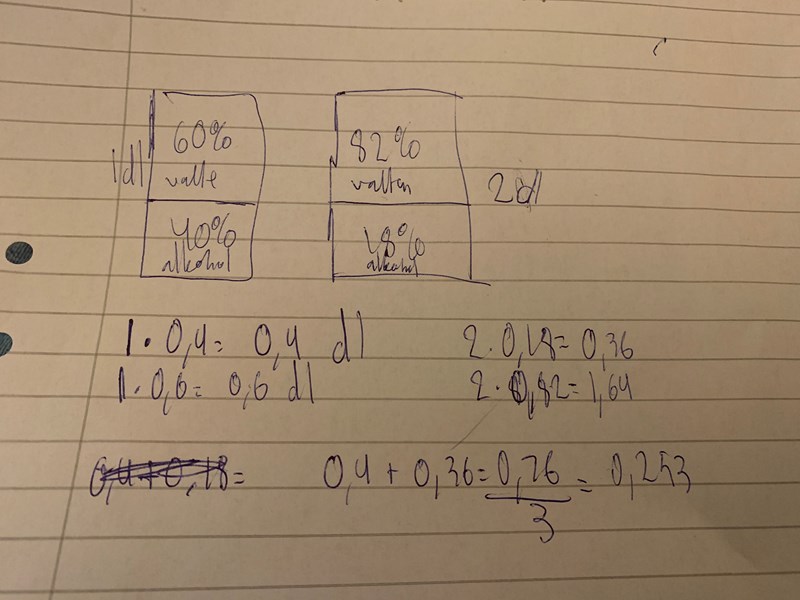 60% 82%
1dl valte vatten 2dl
40% 18%
alkohol alkohol
1 · 0,4 = 0,4 dl 2 · 0,18 = 0,36
1 · 0,6 = 0,6 dl 2 · 0,82 = 1,64
0,4 + 0,18 = 0,4 + 0,36 = 0,76 = 0,253
3